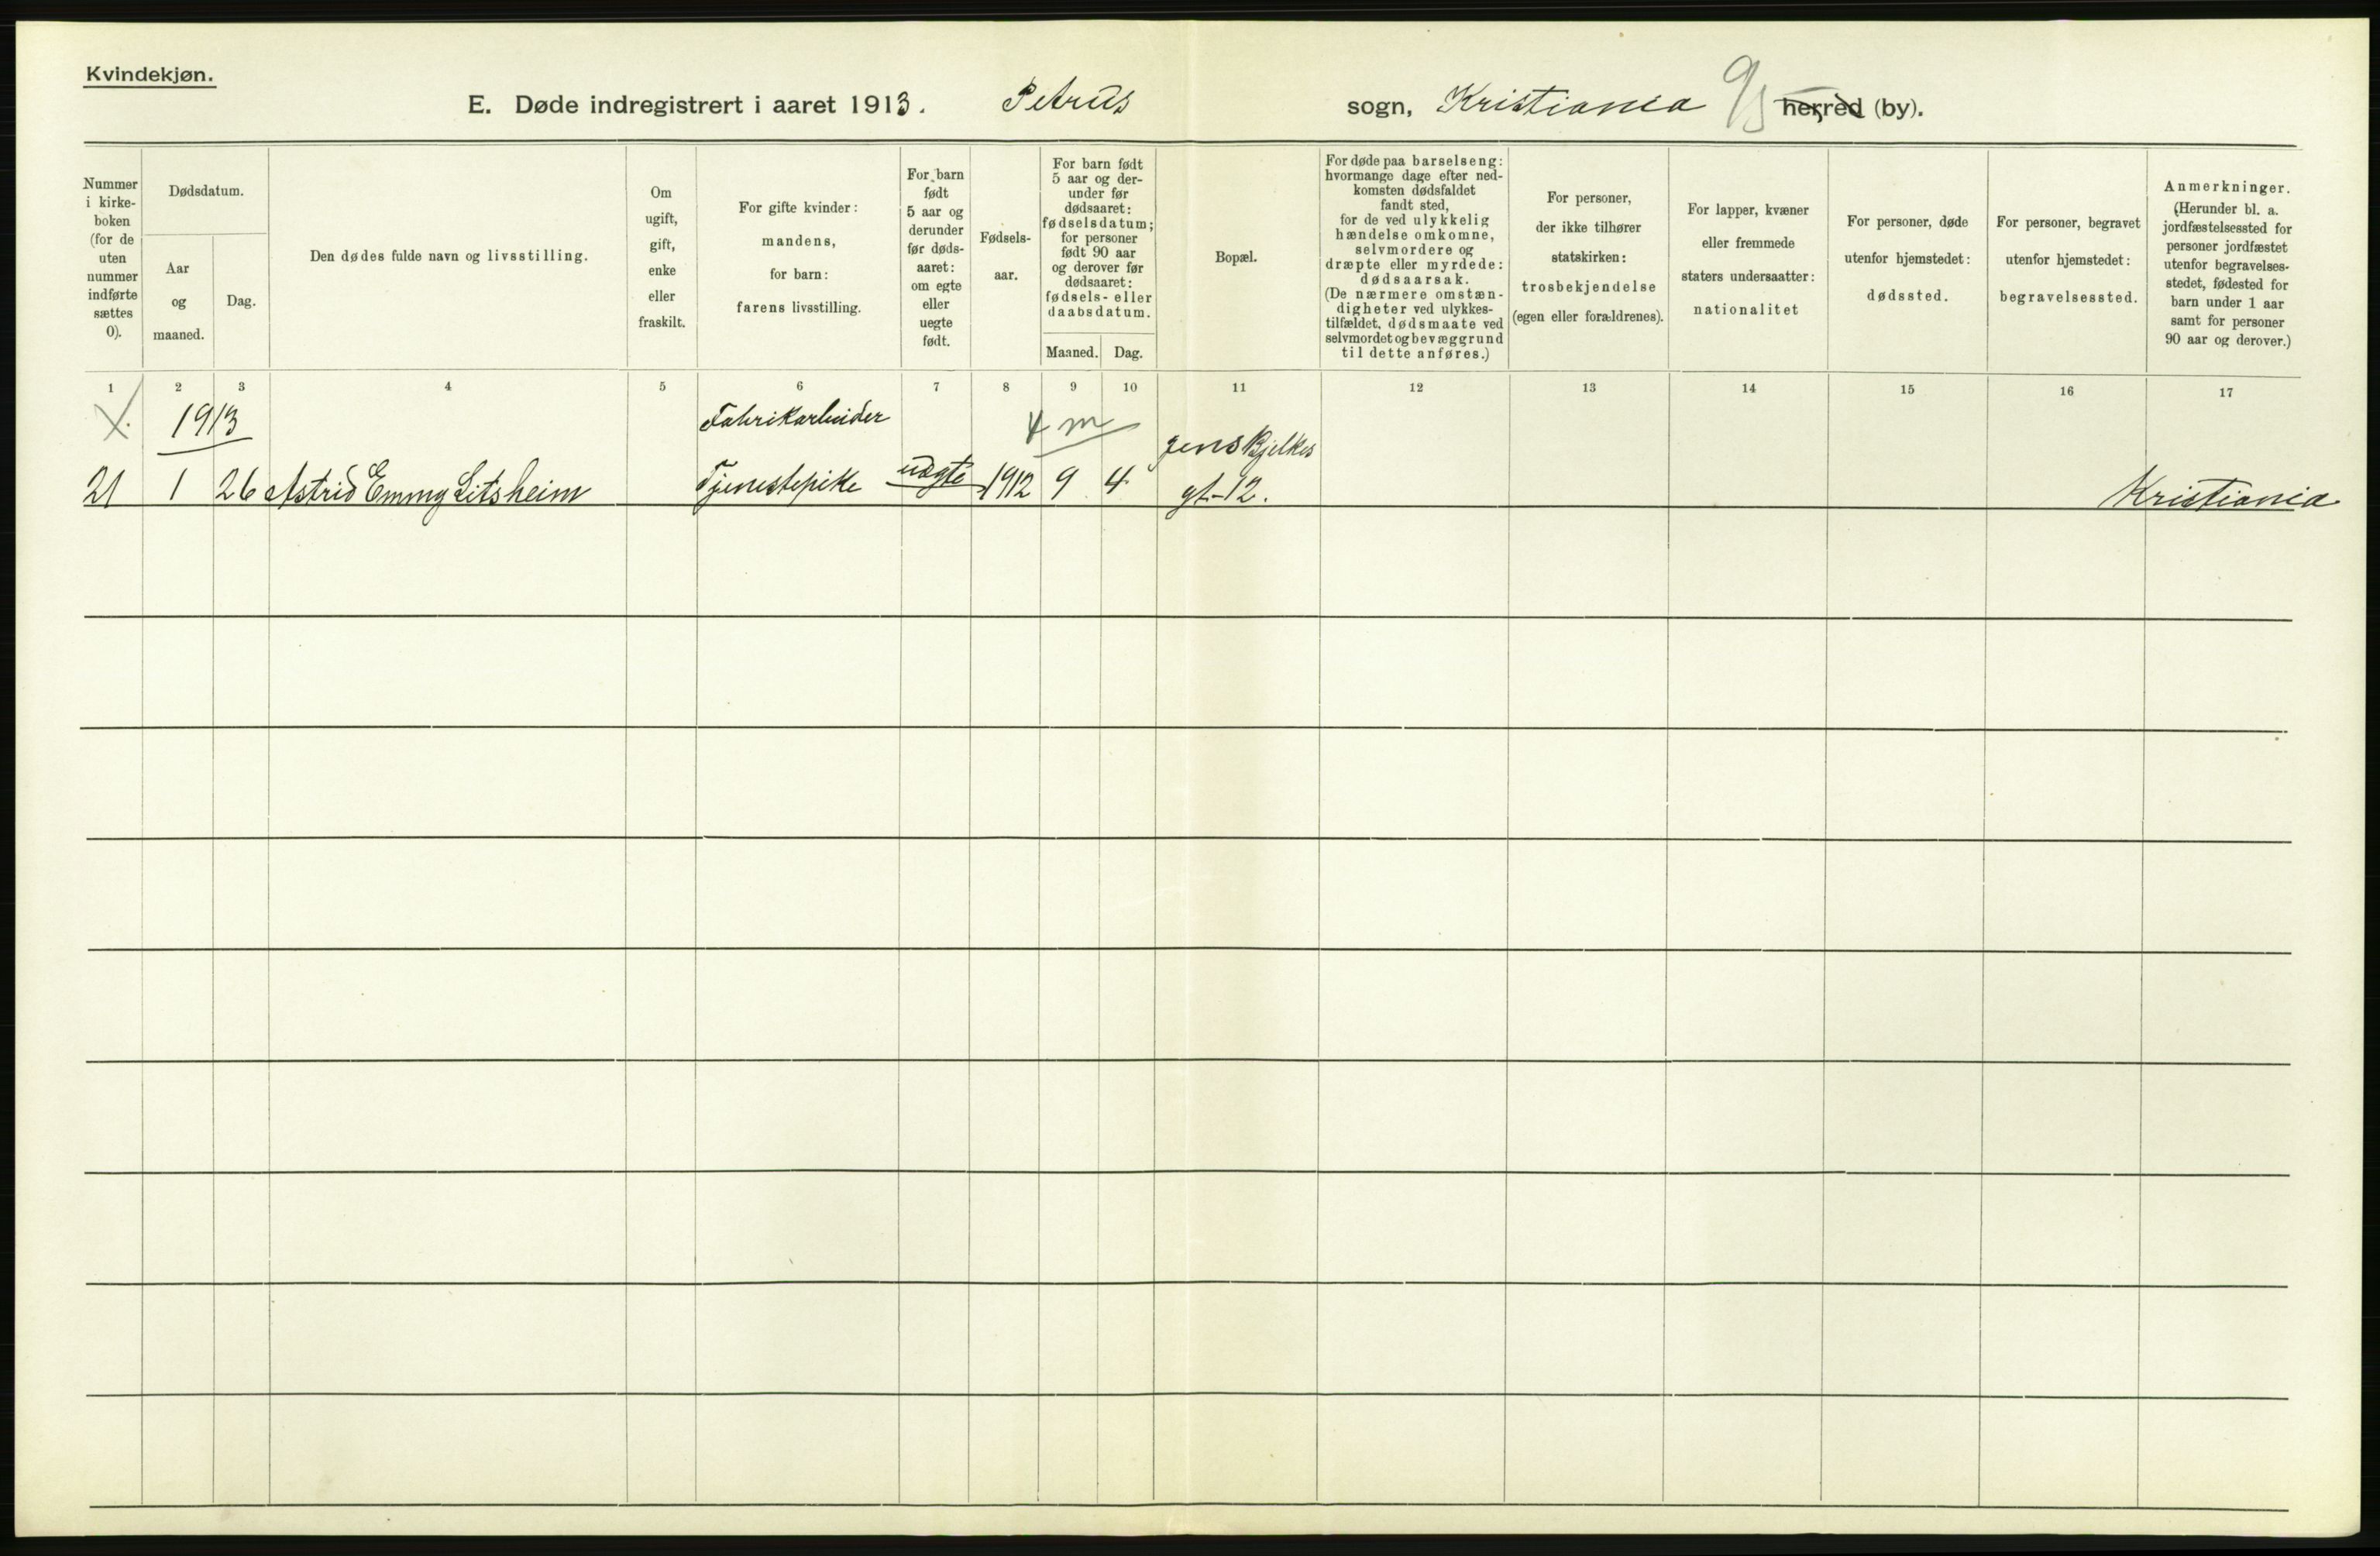 Kvindekjøn.
E. Døde indregistrert i aaret 1913. Petrus sogn, Kristiania herred (by).
Nummer i kirke-boken (for de uten nummer indførte sættes 0).
Dødsdatum.
Aar og maaned.
Dag.
Den dødes fulde navn og livsstilling.
Om ugift, gift, enke eller fraskilt.
For gifte kvinder: mandens, for barn: farens livsstilling.
For barn født 5 aar og derunder før døds-aaret: om egte eller uegte født.
Fødsels-aar.
For barn født 5 aar og der-under før dødsaaret: fødselsdatum; for personer født 90 aar og derover før dødsaaret: fødsels- eller daabsdatum.
Maaned.
Dag.
Bopæl.
For døde paa barselseng: hvormange dage efter ned-komsten dødsfaldet fandt sted, for de ved ulykkelig hændelse omkomne, selvmordere og dræpte eller myrdede: dødsaarsak. (De nærmere omstæn-digheter ved ulykkes-tilfældet, dødsmaate ved selvmordet og bevæggrund til dette anføres.)
For personer, der ikke tilhører statskirken: trosbekjendelse (egen eller forældrenes).
For lapper, kvæner eller fremmede staters undersaatter: nationalitet
For personer, døde utenfor hjemstedet: dødssted.
For personer, begravet utenfor hjemstedet: begravelsessted.
Anmerkninger. (Herunder bl. a. jordfæstelsessted for personer jordfæstet utenfor begravelses-stedet, fødested for barn under 1 aar samt for personer 90 aar og derover.)
1 2 3 4 5 6 7 8 9 10 11 12 13 14 15 16 17
1913 Fabrikarbeider 4 m Jens Bjelkes
21 1 26 Astrid Emmy Litsheim Tjenestepike uægte 1912 9 4 gt-12. Kristiania